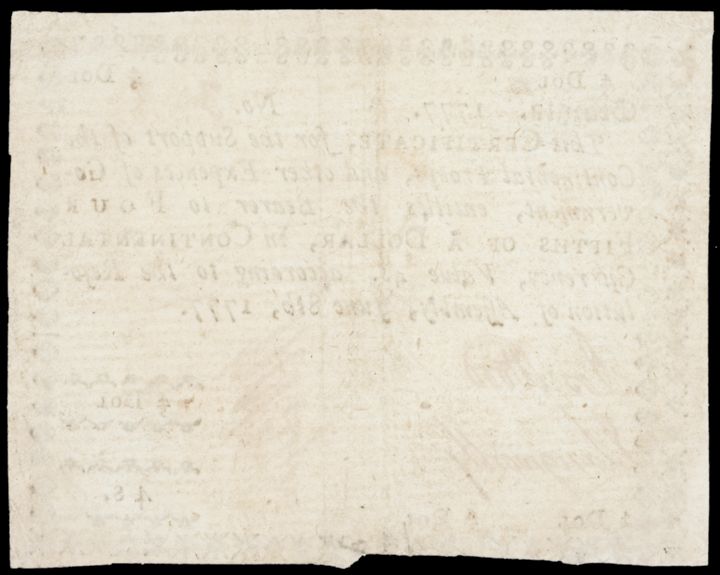 4/5 Dol. 4/5 Dol.
Georgia. 1777. No.
This CERTIFICATE, for the Support of the
Continental Troops, and other Expences of Go-
vernment, entitles the Bearer to FOUR
FIFTHS OF A DOLLAR, in CONTINENTAL
Currency, Value 4s. according to the Reso-
lution of Assembly, June 8th, 1777.
4/5 DOL
4 S.
Dol. Dol.